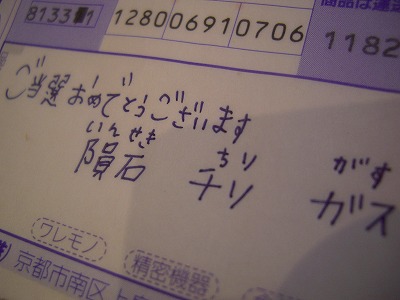 商品は運
8133■1 1280 0691 0706
1182
ご当選おめでとうございます
いんせき ちり がす
隕石 チリ ガス
ワレモノ
精密機器
京都市南区上